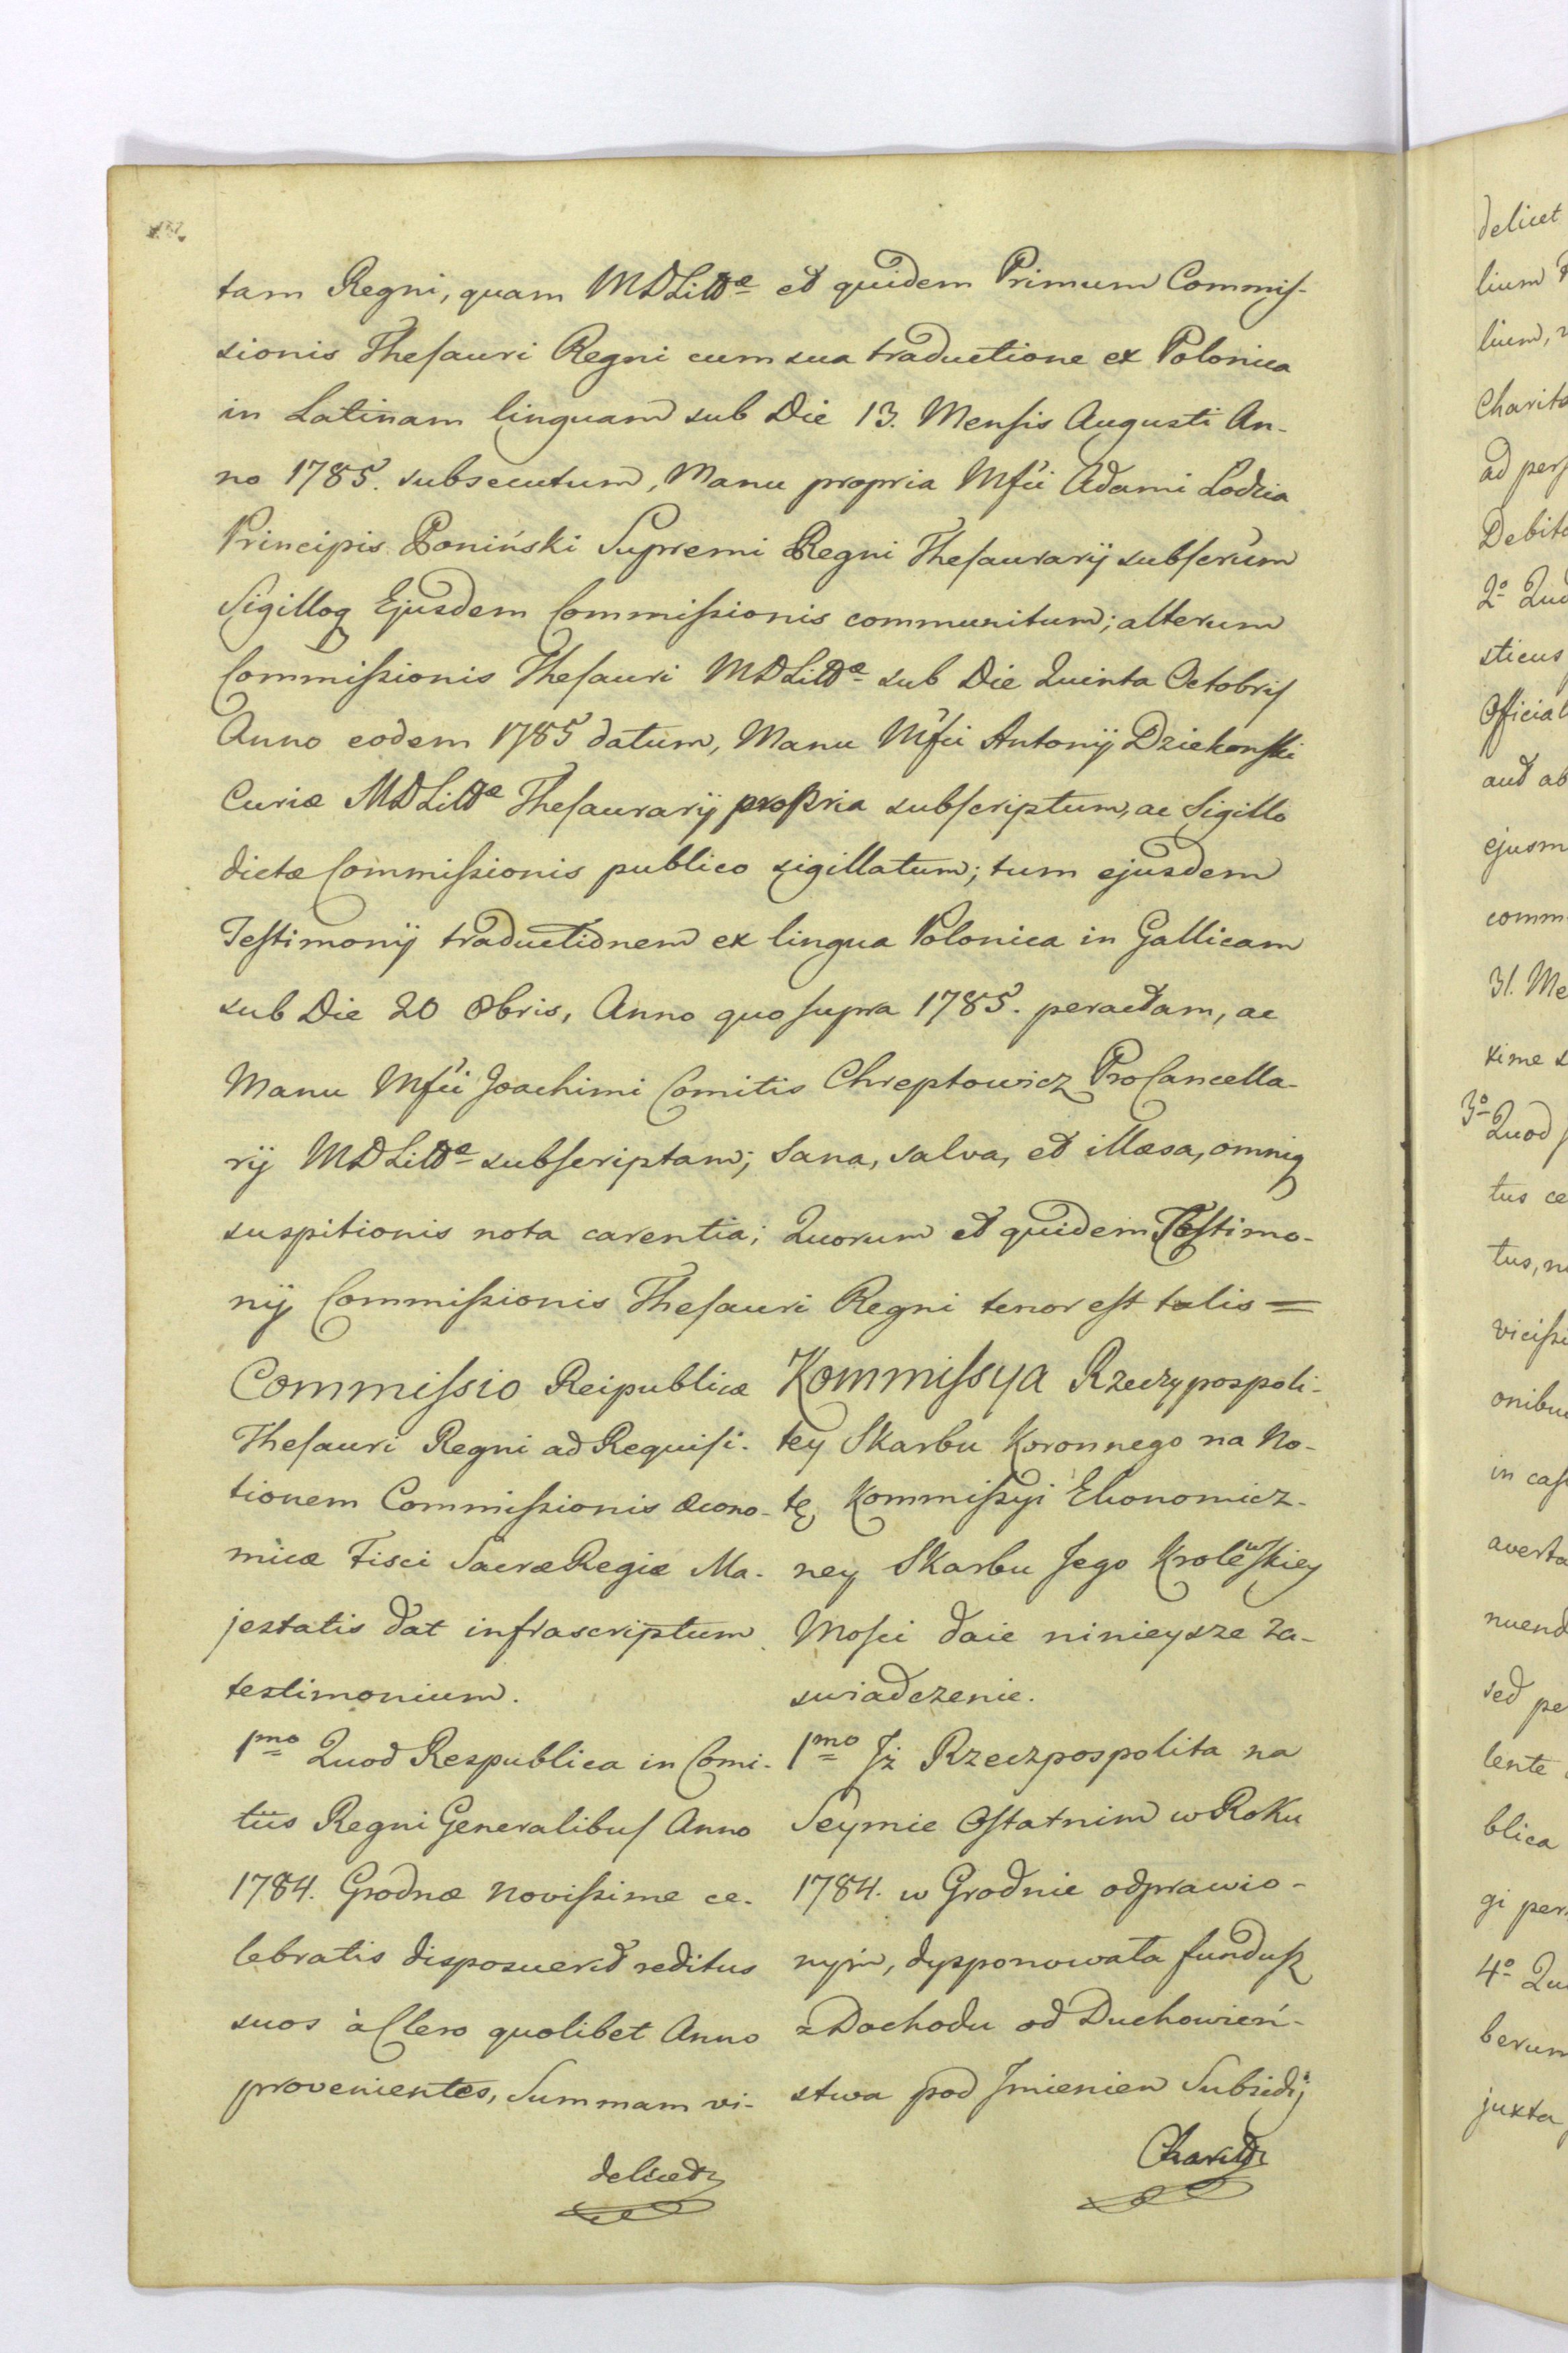 tam Regni, quam MDLittæ et quidem Primum Commis-
sionis Thesauri Regni cum sua traductione ex Polonica
in Latinam linguam sub Die 13. Mensis Augusti An-
no 1785. subsecutum, Manu propria Mfci Adami Lodzia
Principis Poniński Supremi Regni Thesaurarij subscrūm
Sigilloq Ejusdem Commissionis communitum; alterum
Commissionis Thesauri MDLittæ sub Die Quinta Octobris
Anno eodem 1785 datum, Manu Mfci Antonij Dziekonski
Curiæ MDLittæ Thesaurarij propria subscriptum, ac Sigillo
dictæ Commissionis publico sigillatum; tum ejusdem
Testimonij traductionem ex lingua Polonica in Gallicam
sub Die 20 8bris, Anno quo supra 1785. peractam, ac
Manu Mfci Joachimi Comitis Chreptowicz ProCancella-
rij MDLittæ subscriptam; sana, salva, et illæsa, omniq
suspitionis nota carentia; Quorum et quidem Testimo-
nij Commissionis Thesauri Regni tenor est talis =
Commissio Reipublicæ
Thesauri Regni ad Requisi-
tionem Commissionis œcono-
micæ Fisci Sacræ Regiæ Ma-
jestatis dat infrascriptum
testimonium.
1mo Quod Respublica in Comi-
tiis Regni Generalibus Anno
1784. Grodnæ novissime ce-
lebratis disposuerit reditus
suos à Clero quolibet Anno
provenientes, Summam vi-
delicet
Kommissya Rzeczypospoli-
tey Skarbu Koronnego na No-
tę Kommissyi Ekonomicz-
ney Skarbu Jego Krolewskiey
Mosci daie ninieysze za-
swiadczenie.
1mo Jż Rzeczpospolita na
Seymie Ostatnim w Roku
1784. w Grodnie odprawio-
nym, dysponowała fundusz
z Dochodu od Duchowień-
stwa pod Jmieniem Subsidij
Charit
delicet
lium
lium,
Charit
ad per
Debit
2o Quo
sticus
Official
aut ab
ejusm
comm
31. Me
xime
3o Quod
tus ce
tus,
vicissi
onibu
in cas
averta
nuend
sed pe
lente
blica
gi per
4o Qu
berum
juxta